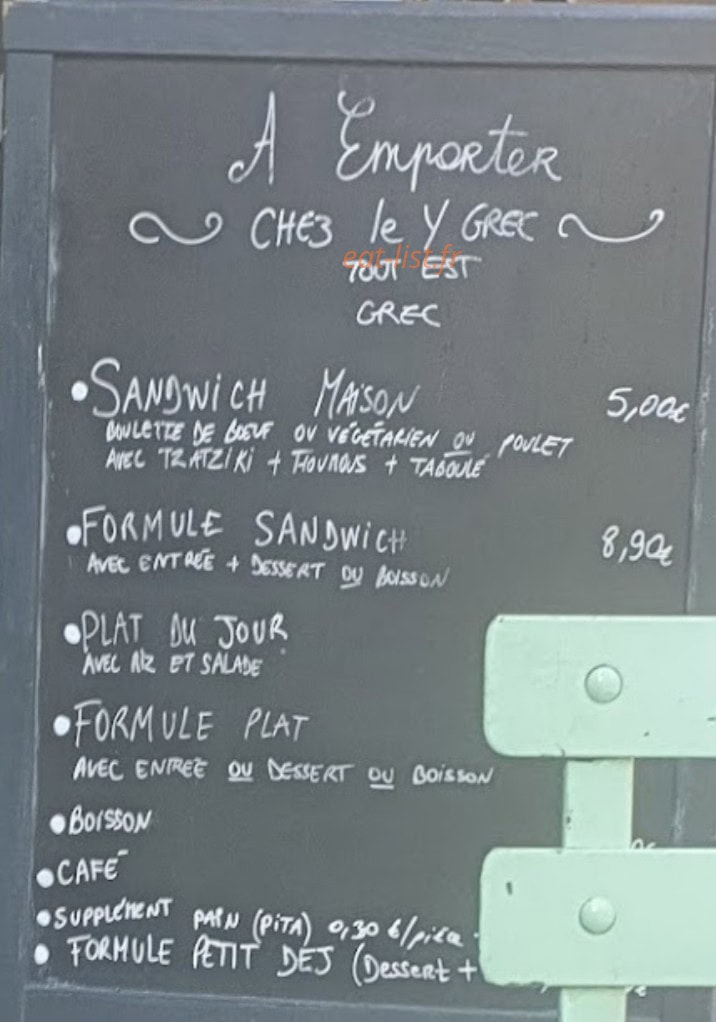 A Emporter
CHEZ le Y GREC
eat-list.fr
TOUT EST
GREC
• SANDWICH MAISON 5,00€
BOULETTE DE BOEUF OU VÉGÉTARIEN OU POULET
AVEC TZATZIKI + HOUMOUS + TABOULÉ
• FORMULE SANDWICH 8,90€
AVEC ENTRÉE + DESSERT OU BOISSON
• PLAT DU JOUR
AVEC RIZ ET SALADE
• FORMULE PLAT
AVEC ENTREE OU DESSERT OU BOISSON
• BOISSON
• CAFÉ
• SUPPLÉMENT PAIN (PITA) 0,30 €/pièce
• FORMULE PETIT DEJ (Dessert +